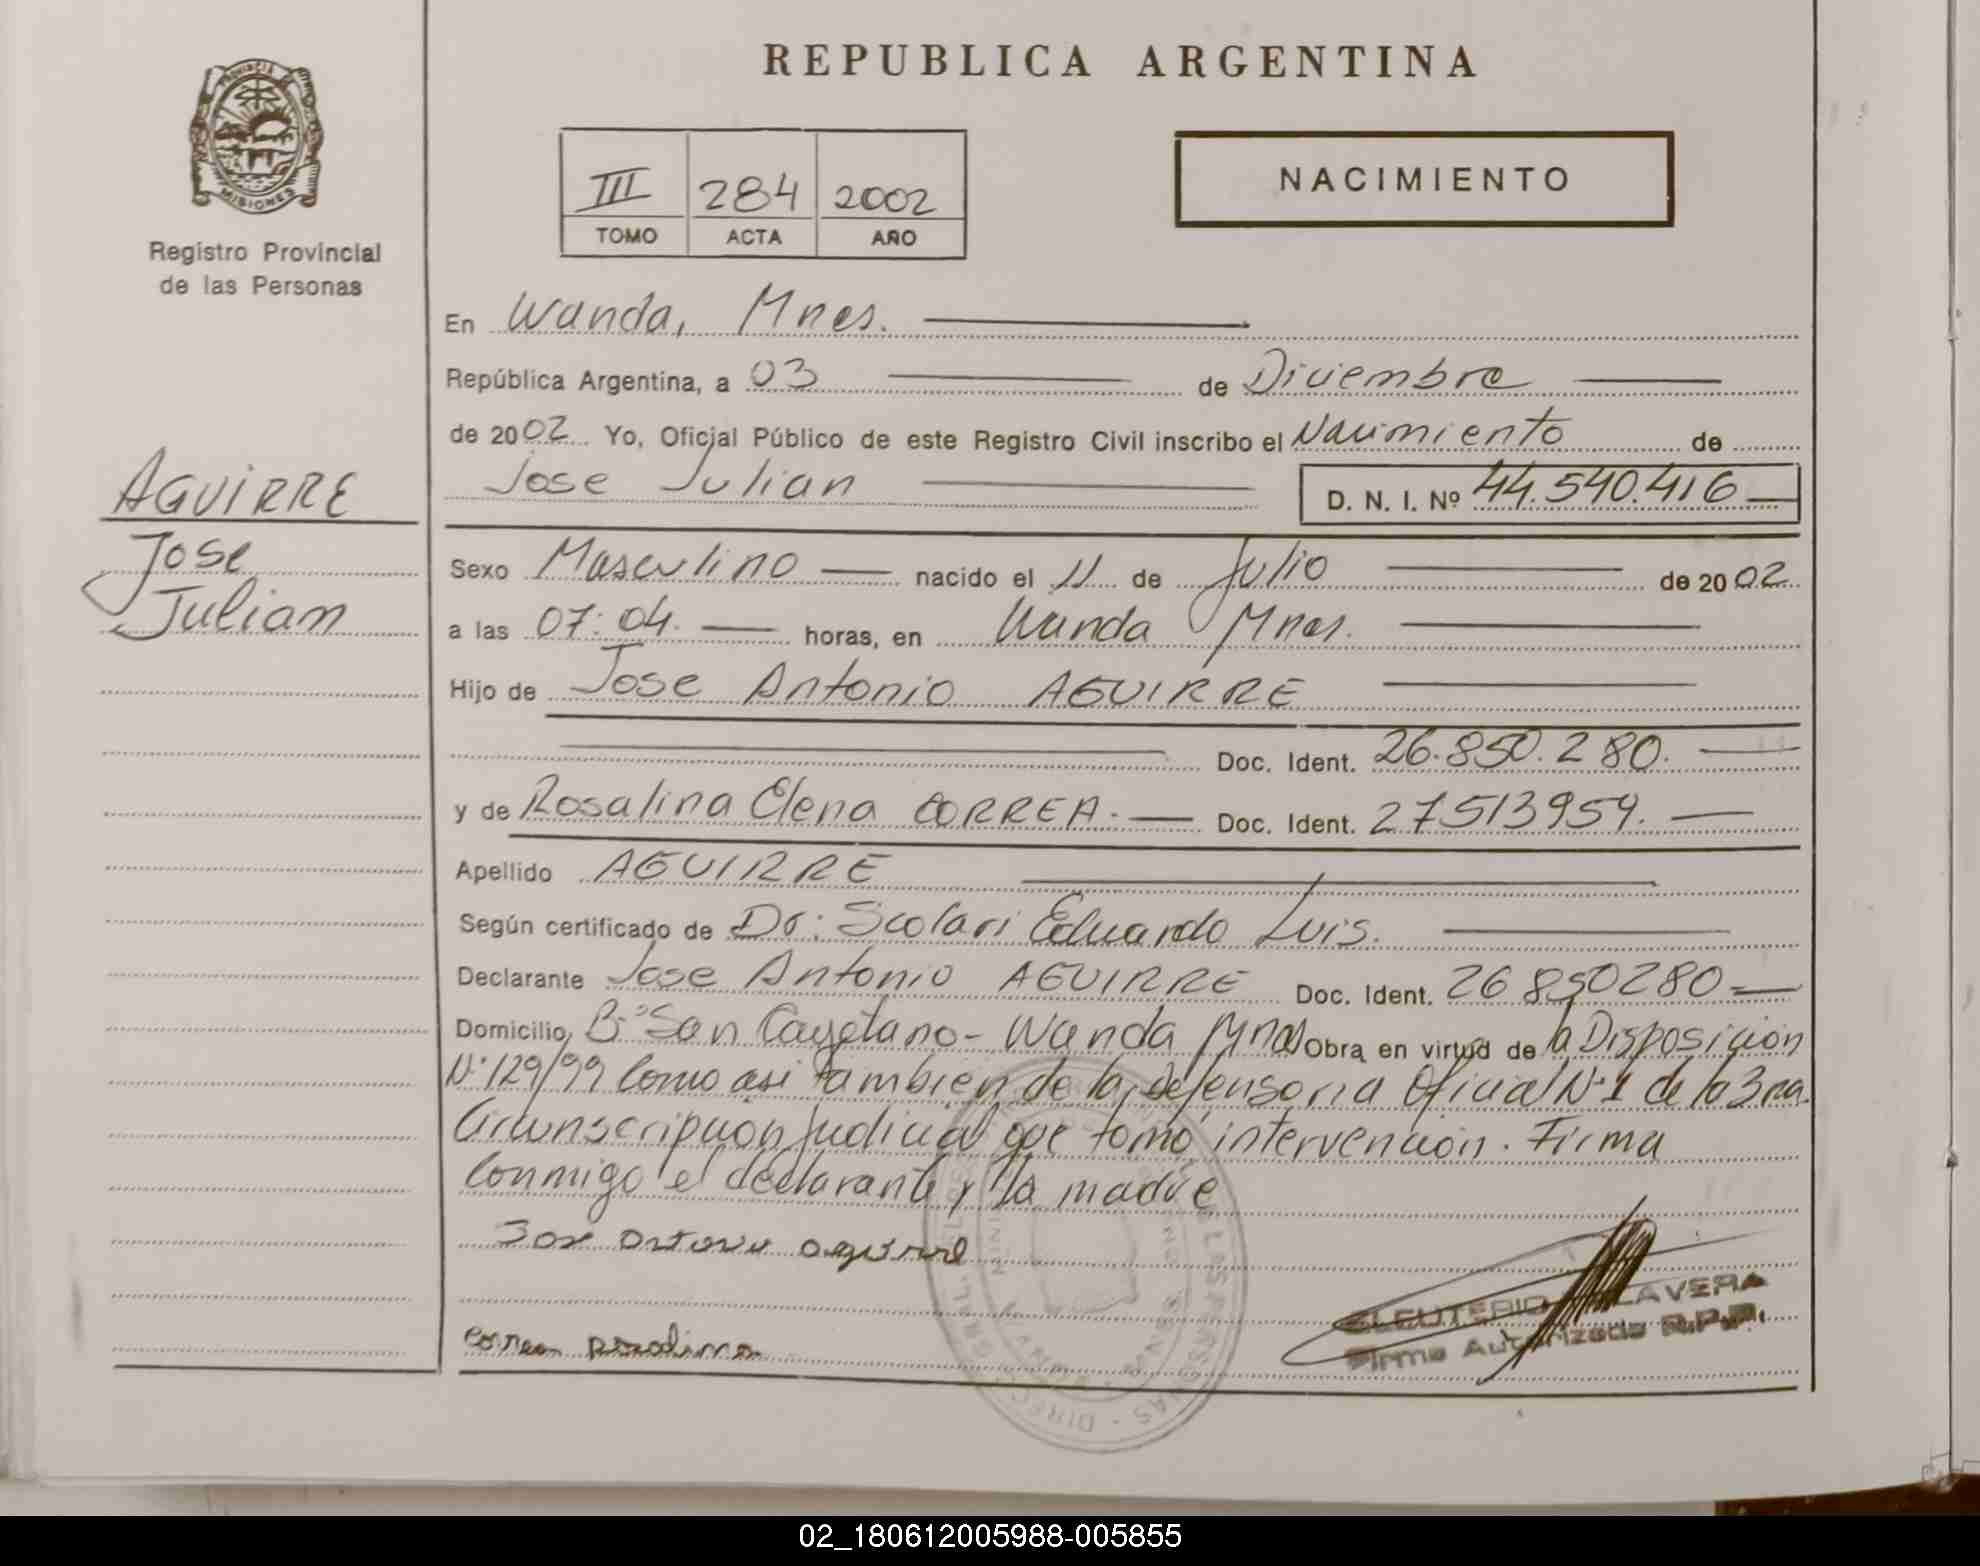 REPUBLICA ARGENTINA
PROVINCIA
MISIONES
Registro Provincial
de las Personas
III 284 2002
TOMO ACTA AÑO
NACIMIENTO
AGUIRRE
Jose
Julian
En Wanda, Mnes.
República Argentina, a 03 de Diciembre
de 2002 Yo, Oficial Público de este Registro Civil inscribo el Nacimiento de
Jose Julian D. N. I. Nº 44.540.416
Sexo Masculino nacido el 11 de Julio de 2002
a las 07:04. horas, en Wanda Mnes.
Hijo de Jose Antonio AGUIRRE
Doc. Ident. 26.850.280.
y de Rosalina Elena CORREA.- Doc. Ident. 27513959.
Apellido AGUIRRE
Según certificado de Dr: Scolari Eduardo Luis.
Declarante Jose Antonio AGUIRRE Doc. Ident. 26850280
Domicilio, Bº San Cayetano - Wanda Mnes Obra en virtud de la Disposición
Nº 129/99 como asi tambien de la defensoria Oficial Nº 1 de la 3ra.
Circunscripción Judicial que tomó intervención. Firma
conmigo el declarante y la madre
Jose Antonio aguirre
Correa Rosalina
ELEUTERIO
Firma Autorizada R.P.P.
02_180612005988-005855